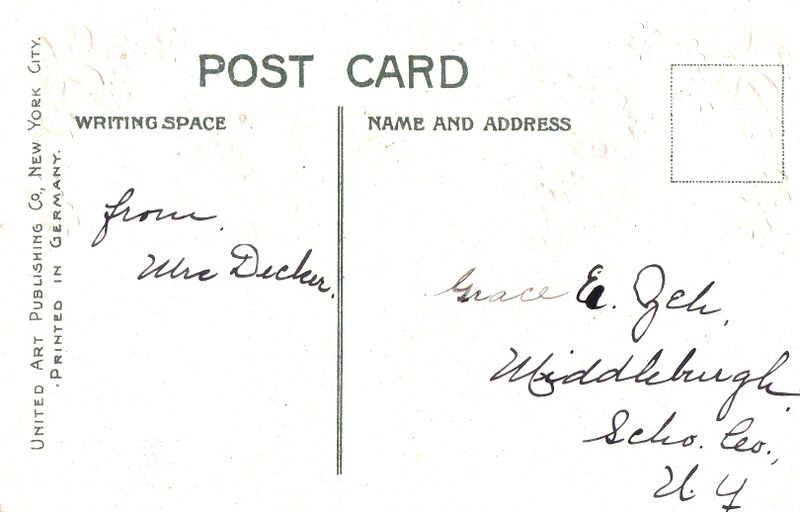 UNITED ART PUBLISHING CO., NEW YORK CITY.
PRINTED IN GERMANY.
POST CARD
WRITING SPACE
NAME AND ADDRESS
from
Mrs Decker.
Grace E. Zeh,
Middleburgh
Scho. Co.,
N. Y